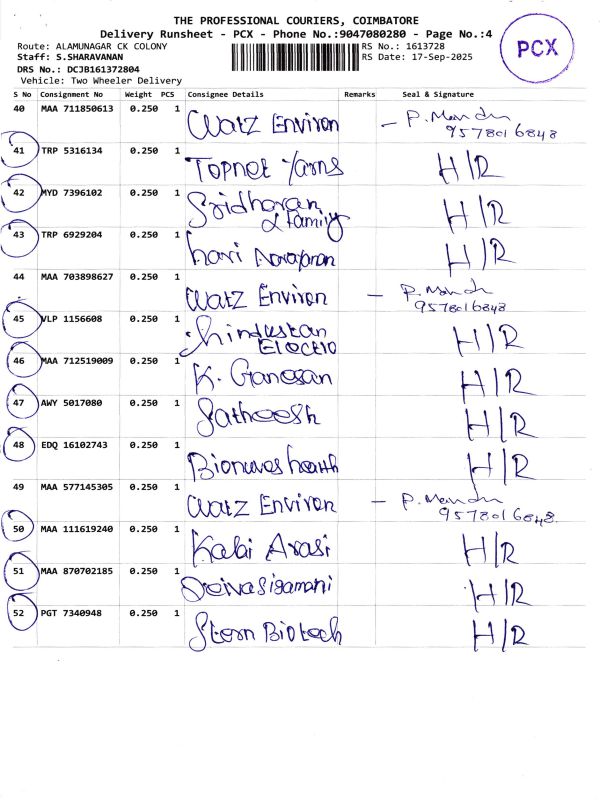 THE PROFESSIONAL COURIERS, COIMBATORE
Delivery Runsheet - PCX - Phone No.:9047080280 - Page No.:4
Route: ALAMUNAGAR CK COLONY RS No.: 1613728
Staff: S.SHARAVANAN RS Date: 17-Sep-2025
DRS No.: DCJB161372804
Vehicle: Two Wheeler Delivery
PCX
S No Consignment No Weight PCS Consignee Details Remarks Seal & Signature
40 MAA 711850613 0.250 1 Watz Environ - P. 
9578016848
41 TRP 5316134 0.250 1 Topnet Yarns H/R
42 MYD 7396102 0.250 1 Sridharan H/R
& family
43 TRP 6929204 0.250 1 hari H/R
44 MAA 703898627 0.250 1 Watz Environ - P. 
9578016848
45 VLP 1156608 0.250 1 hindustan H/R
Electro
46 MAA 712519009 0.250 1 K. Ganesan H/R
47 AWY 5017080 0.250 1 Satheesh H/R
48 EDQ 16102743 0.250 1 H/R
49 MAA 577145305 0.250 1 Watz Environ - P. 
9578016848.
50 MAA 111619240 0.250 1 Kalai Arasi H/R
51 MAA 870702185 0.250 1 Deivasigamani H/R
52 PGT 7340948 0.250 1 Stern Biotech H/R